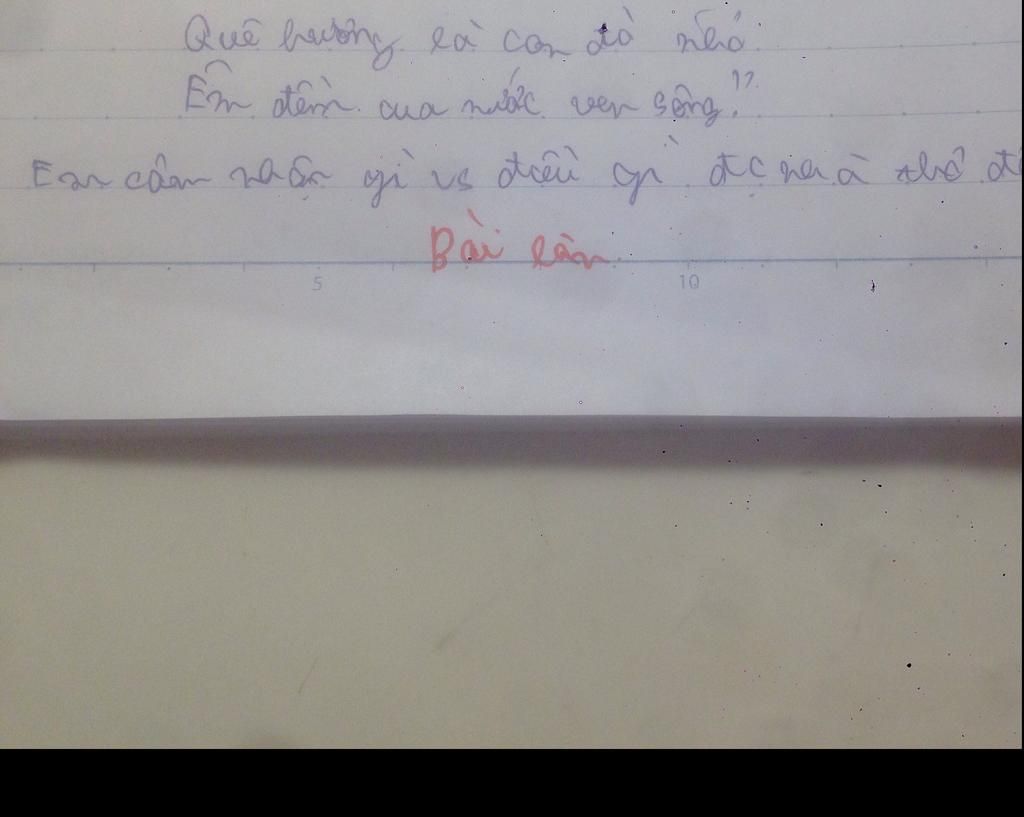 Quê hương là con đò nhỏ
Êm đềm cua nước ven sông"
Em cảm nhận gì vs điều gì đc nhà thơ
Bài làm
5 10